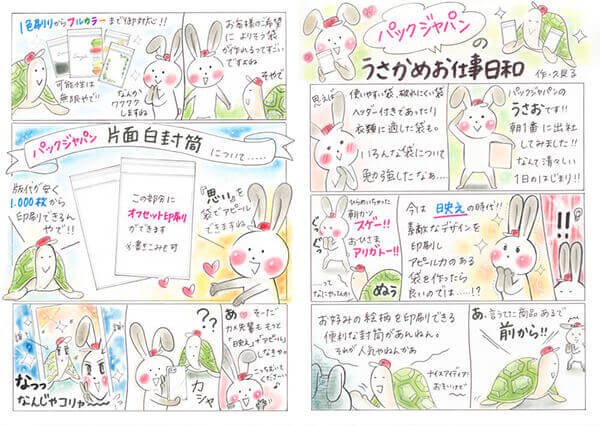 パックジャパン
の
うさかめお仕事日和
作・久見る
パックジャパンの
うさおです!!
朝1番に出社
してみました!!
なんて清々しい
1日のはじまり!!
思えば
使いやすい袋、破れにくい袋
ヘッダー付きであったり
衣類に適した袋も。
いろんな袋について
勉強したなぁ…
今は日映えの時代!!
素敵なデザインを
印刷し
アピール力のある
袋を作ったら
良いのでは……!?
!!
ひらめいちゃった
朝カツ
スゲー!!
おひさま
アリガトー!!
ぐっ
…って
なにやってんねん
ぬぅぅ
あ、言うてけど商品あるで
前から!!
お好みの絵柄を印刷できる
便利な封筒があんねん。
それが人気やねんなぁ
ナイスアイディア!
おそいけど
お客様のご希望
によりそう袋
が作れるってすごい
ですねぇ
そやで
1色刷りからフルカラーまで御対応!!
可能性は
無限やで!!
なんか
ワクワク
しますね
パックジャパン 片面白封筒
について……
『思い』を
袋でアピール
できますね
この部分に
オフセット印刷
ができます
※書きこみも可
版代が安く
1,000枚から
印刷できるん
やで!!
あ そーだ
カメ先輩も もっと
「日映え」アピール
しなきゃ
こっちむいて
ください
??
カシャ
なっっ
なんじゃコリャ